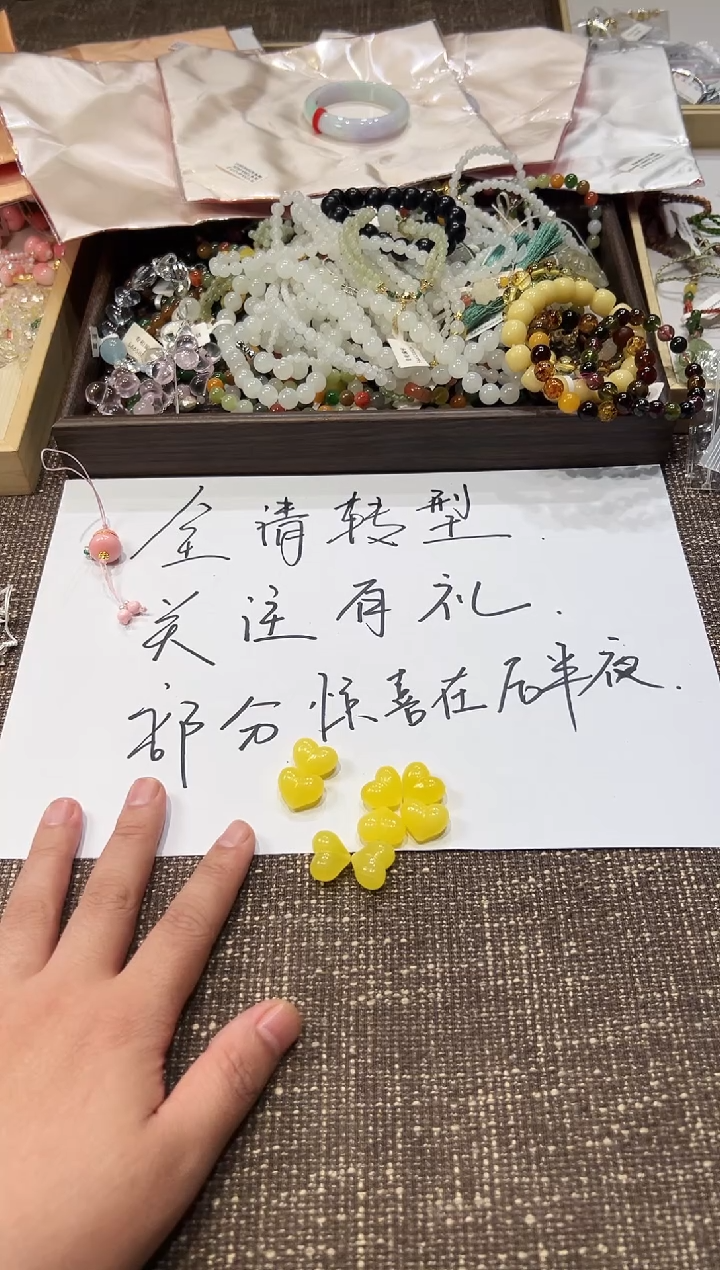 全清转型.
关注有礼.
部分惊喜在后半夜.